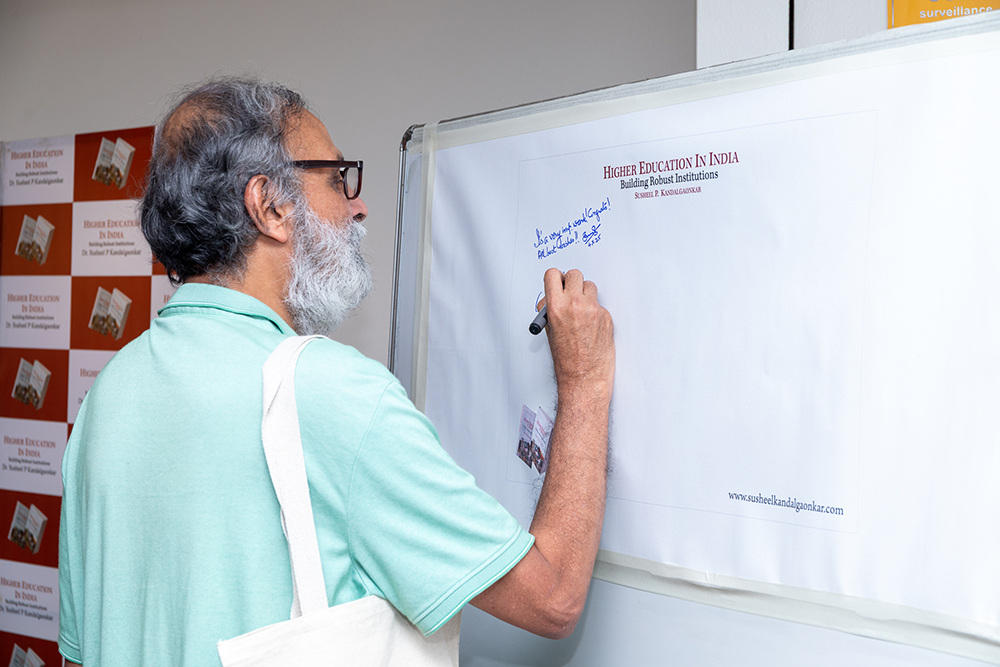 surveillance
HIGHER EDUCATION IN INDIA
Building Robust Institutions
SUSHEEL P. KANDALGAONKAR
It's a very imp. work! Congrats!
All best wishes!!
2.5.25
www.susheelkandalgaonkar.com
HIGHER EDUCATION
IN INDIA
Building Robust Institutions
Dr. Susheel P Kandalgaonkar
HIGHER EDUCATION
IN INDIA
Building Robust Institutions
Dr. Susheel P Kandalgaonkar
HIGHER EDUCATION
IN INDIA
Building Robust Institutions
Dr. Susheel P Kandalgaonkar
HIGHER
HIGHER EDUCATION
IN INDIA
Building Robust Institutions
Dr. Susheel P Kandalgaonkar
HIGHER EDUCATION
IN INDIA
Building Robust Institutions
Dr. Susheel P Kandalgaonkar